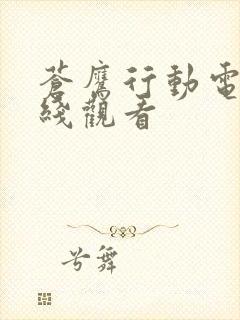 蒼鷹行動電
綫觀看
兮舞